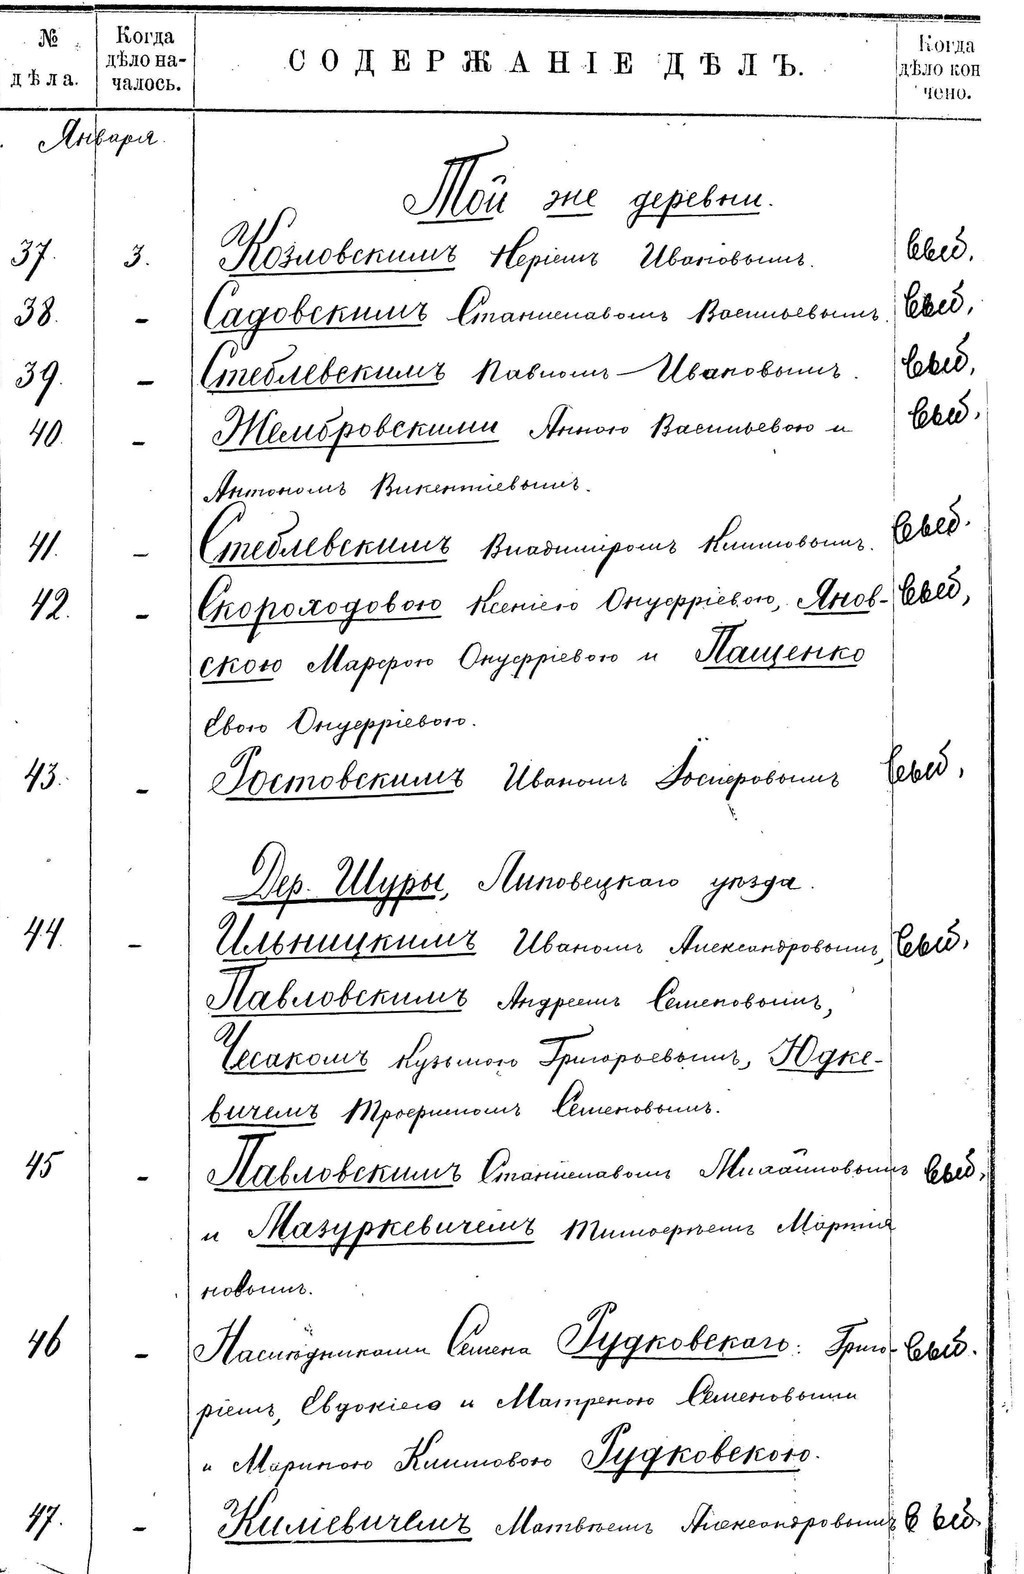 № дѣла.
Когда дѣло на-
чалось.
СОДЕРЖАНІЕ ДѢЛЪ.
Когда дѣло кон
чено.
Января.
Той же деревни.
37. 3. Козловскимъ Юріемъ Ивановымъ.
38. – Садовскимъ Станиславомъ Васильевымъ.
39. – Стеблевскимъ Павломъ Ивановымъ.
40. – Жембровскими Анною Васильевою и
Антономъ Викентіевымъ.
41. – Стеблевскимъ Владиміромъ Климовымъ.
42. – Скороходовою Ксеніею Онуфріевою, Янов-
скою Марфою Онуфріевою и Пащенко
Евою Онуфріевою.
43. – Ростовскимъ Иваномъ Іосифовымъ
Дер. Шуры, Липовецкаго уѣзда.
44. – Ильницкимъ Иваномъ Александровымъ,
Павловскимъ Андреемъ Семеновымъ,
Чесакомъ Кузьмою Григорьевымъ, Юдке-
вичемъ Трофимомъ Семеновымъ.
45 – Павловскимъ Станиславомъ Михайловымъ
и Мазуркевичемъ Тимофѣемъ Мартия
новымъ.
46 – Наслѣдниками Семена Рудковскаго: Григо-
ріемъ, Евдокіею и Матреною Семеновыми
и Мариною Климовою Рудковскою.
47. – Килievичемъ Матвѣемъ Александровымъ